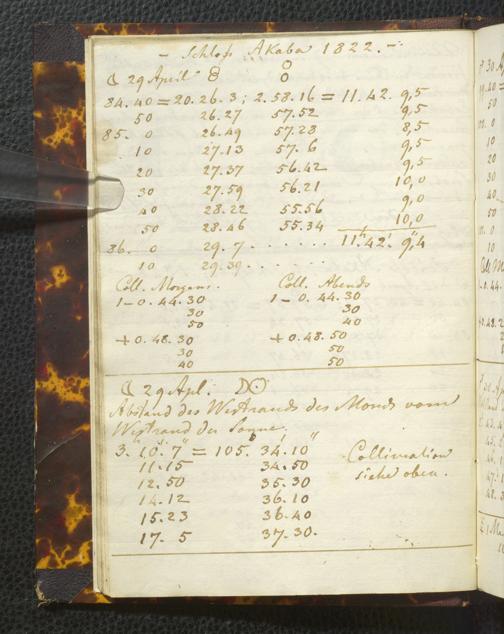 - Schloss Akaba 1822. -
☾ 29 April
84. 40 = 20. 26. 3 ; 2. 58. 16 = 11. 42. 9,5
50 26. 27 57. 52 9,5
85. 0 26. 49 57. 28 8,5
10 27. 13 57. 6 9,5
20 27. 37 56. 42 9,5
30 27. 59 56. 21 10,0
40 28. 22 55. 56 9,0
50 28. 46 55. 34 10,0
86. 0 29. 7 . . . . . . . 11. 42. 9,4
10 29. 30 . . . . . .
Coll. Morgens. Coll. Abends
1 - 0. 44. 30 1 - 0. 44. 30
30 30
50 40
+ 0. 48. 30 + 0. 48. 50
30 50
40 50
☾ 29 Apl. ☽☉
Abstand des Westrands des Monds vom
Westrand der Sonne.
3. 10. 7" = 105. 34. 10"
11. 15 34. 50 Collimation
12. 50 35. 30 siehe oben.
14. 12 36. 10
15. 23 36. 40
17. 5 37. 30.